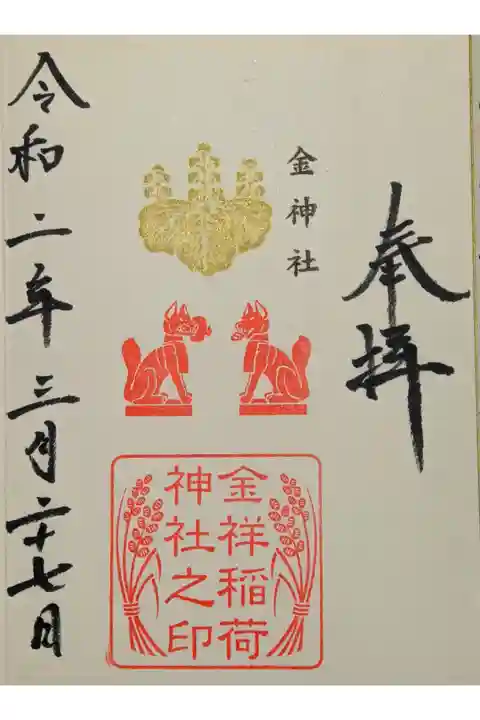 奉拝
金神社
金祥稲荷
神社之印
令和二年三月二十七日